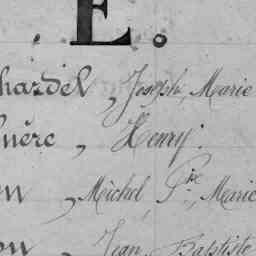 . E .
hardel, Joseph, Marie
mère, Henry.
n, Michel, Pre, Marie
on, Jean, Baptiste